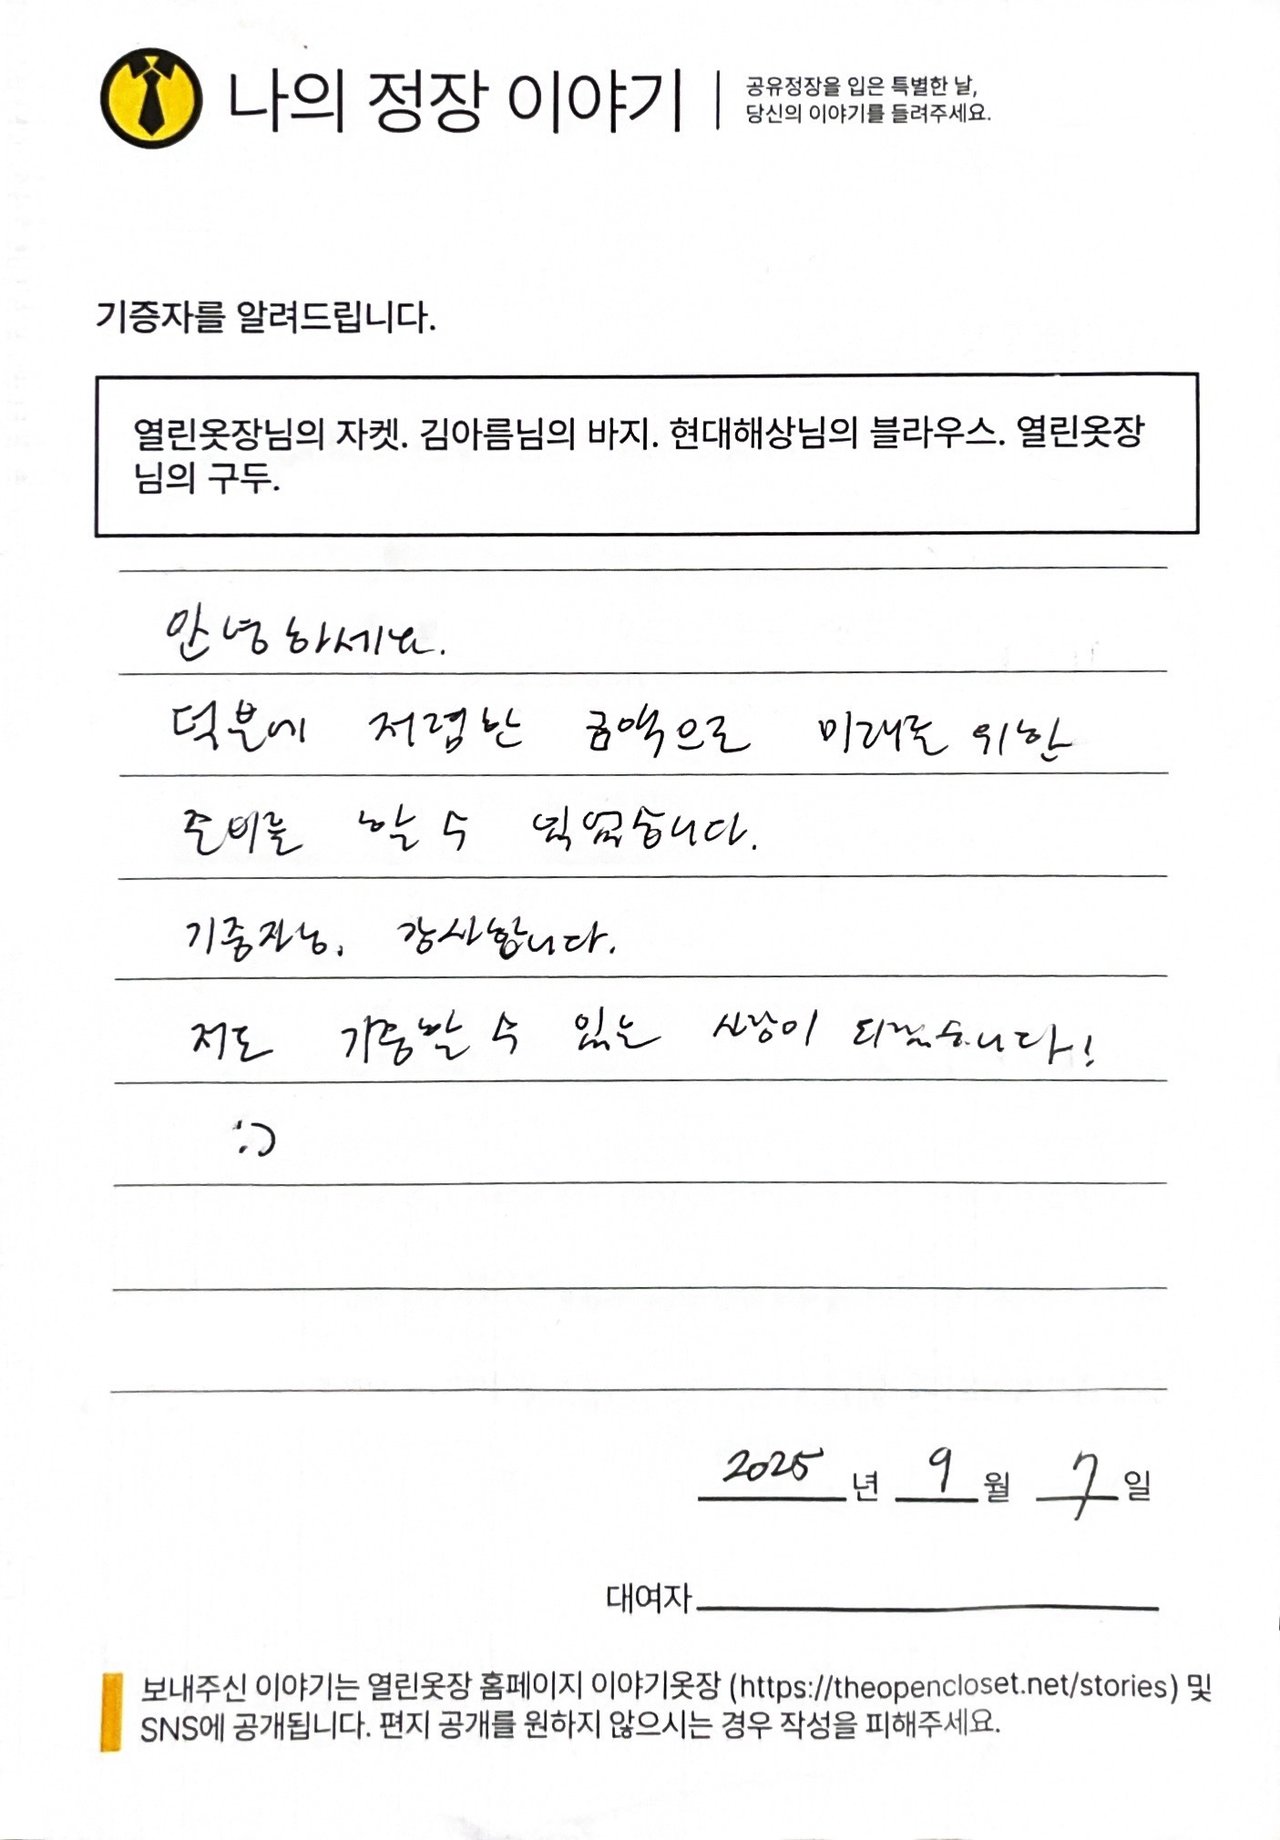 나의 정장 이야기
공유정장을 입은 특별한 날,
당신의 이야기를 들려주세요.
기증자를 알려드립니다.
열린옷장님의 자켓. 김아름님의 바지. 현대해상님의 블라우스. 열린옷장
님의 구두.
안녕하세요.
덕분에 저렴한 금액으로 미래를 위한
준비를 할 수 있었습니다.
기증자님, 감사합니다.
저도 기증할 수 있는 사람이 되겠습니다!
:)
2025년 9월 7일
대여자
보내주신 이야기는 열린옷장 홈페이지 이야기옷장 (https://theopencloset.net/stories) 및
SNS에 공개됩니다. 편지 공개를 원하지 않으시는 경우 작성을 피해주세요.